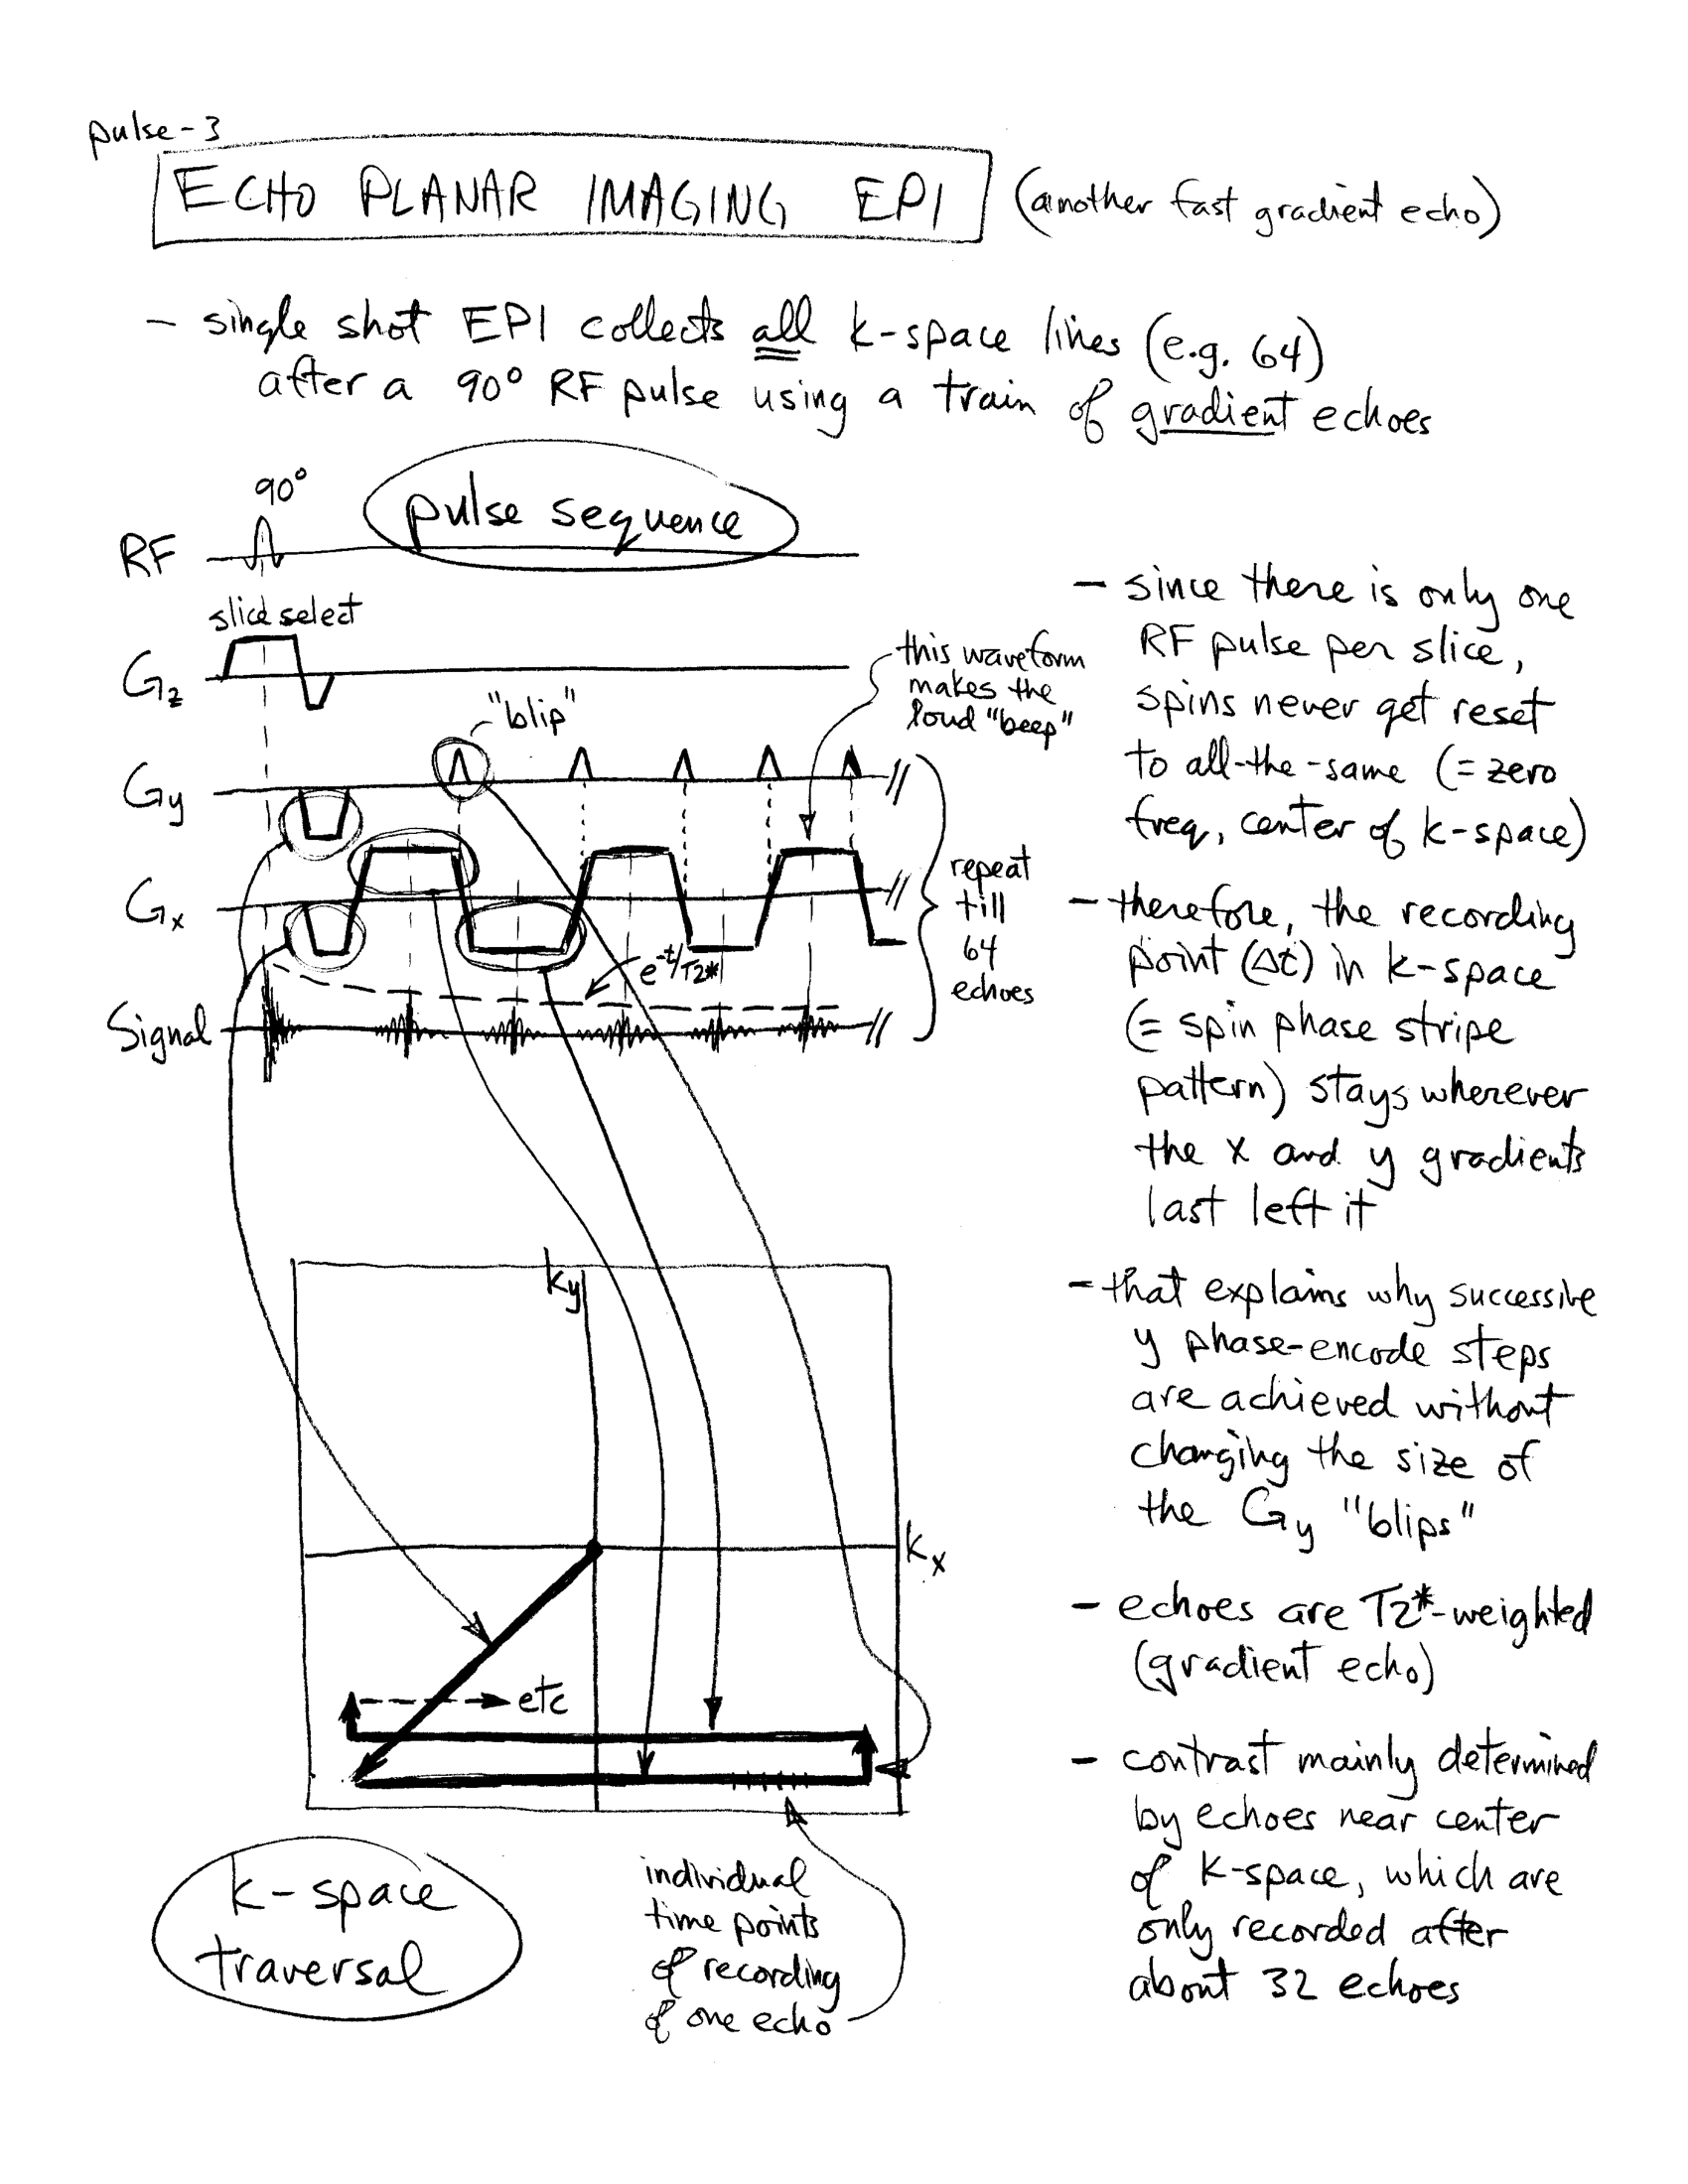 pulse-3
ECHO PLANAR IMAGING EPI (another fast gradient echo)
- single shot EPI collects all k-space lines (e.g. 64)
after a 90° RF pulse using a train of gradient echoes
90°
pulse sequence
RF
slice select
Gz
"blip"
this waveform
makes the
loud "beep"
Gy
Gx
e^-t/T2*
Signal
repeat
till
64
echoes
- since there is only one
RF pulse per slice,
spins never get reset
to all-the-same (= zero
freq, center of k-space)
- therefore, the recording
point (Δt) in k-space
(= spin phase stripe
pattern) stays wherever
the x and y gradients
last left it
- that explains why successive
y phase-encode steps
are achieved without
changing the size of
the Gy "blips"
- echoes are T2*-weighted
(gradient echo)
- contrast mainly determined
by echoes near center
of k-space, which are
only recorded after
about 32 echoes
ky
kx
etc
k-space
traversal
individual
time points
of recording
of one echo